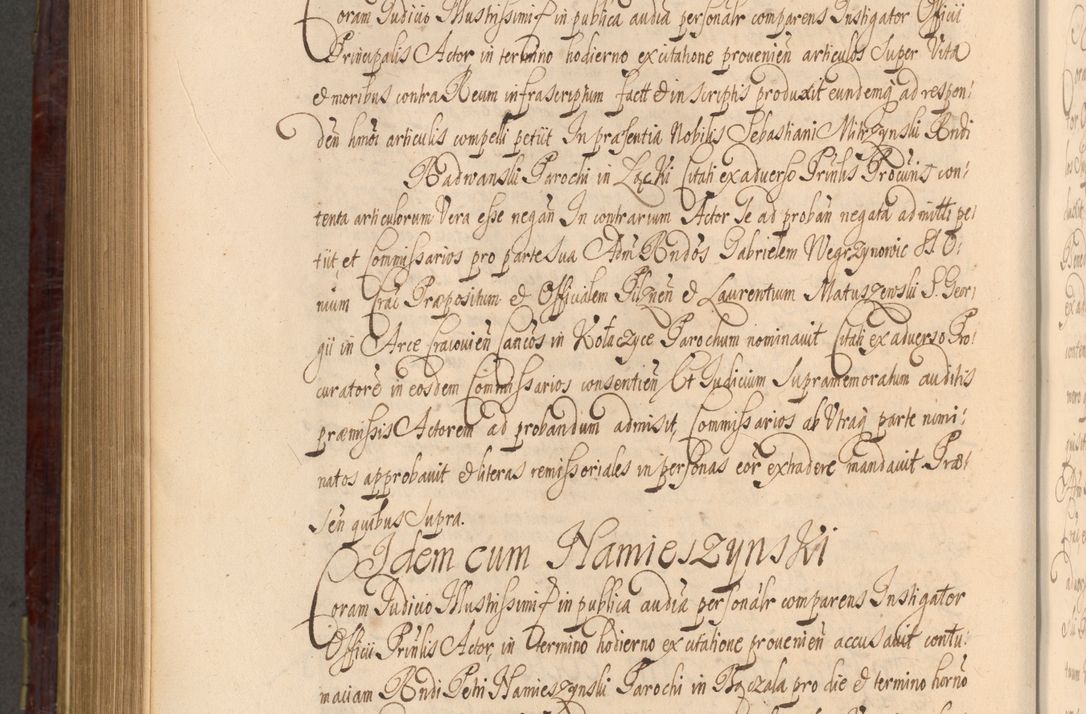 Coram Judicio Illustrissimi et in publica audia personalr comparens Instigator Officii
Principalis Actor in termino hodierno ex citatione provenien articulos super Vita
et moribus contra Reum infrascriptum facit et in scriptis produxit eundemq ad respon:
den hmoi articulis compelli petiit In praesentia Nobilis Sebastiani Mirzynski Rndi
Radwanski Parochi in Lącki Citati ex adverso Prinlis Procuris con:
tenta articulorum Vera esse negan In contrarium Actor se ad proban negata admitti pe:
tiit, et Commissarios pro parte sua Adm Rndos Gabrielem Wegrzynowic SS. O:
nium Crac Praepositum et Officialem Pilznen et Laurentium Matuszewski S. Geor:
gii in Arce Cracovien Cancos in Kołaczyce Parochum nominavit Citati ex adverso Pro:
curatore in eosdem Commissarios consentien Et Judicium supramemoratum auditis
praemissis Actorem ad probandum admisit, Commissarios ab Utraq parte nimi:
natos approbavit et literas remissoriales in personas eor extradere mandavit. Prae:
sen quibus supra.
Idem cum Namieszynski
Coram Judicio Illustrissimi et in publica audia personalr comparens Instigator
Officii Prinlis Actor, in Termino hodierno ex citatione provenien accusavit contu:
maciam Rndi Petri Namieszynski Parochi in Pączala pro die et termino horno